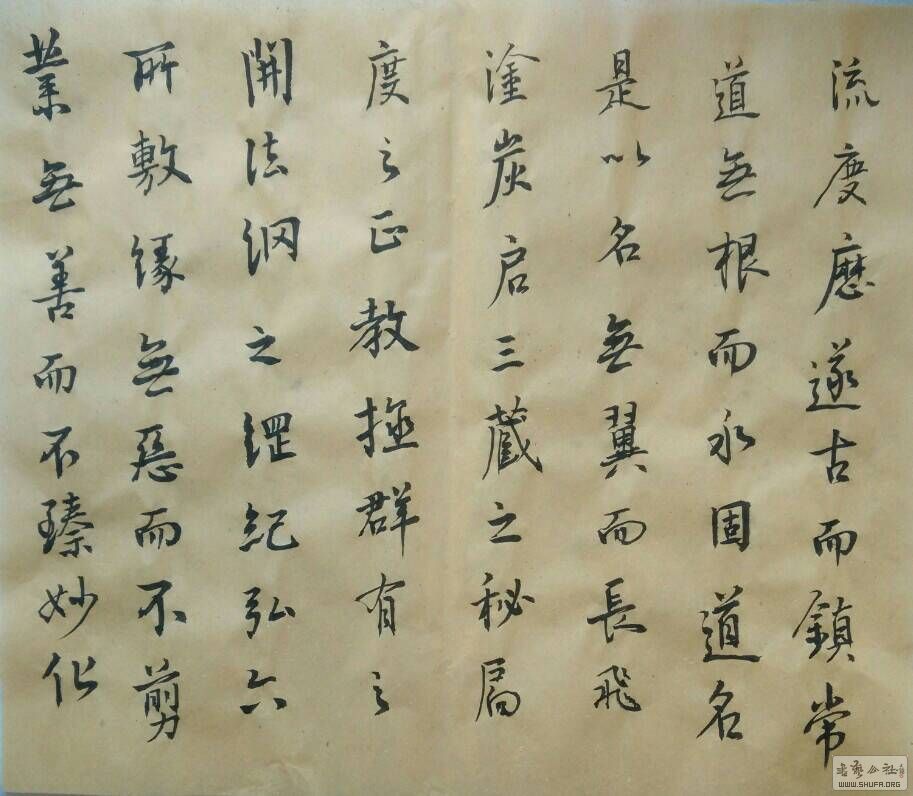 業無善而不臻妙化
所敷緣無惡而不剪
開法網之綱紀弘六
度之正教拯群有之
塗炭启三藏之秘扃
是以名無翼而長飛
道無根而永固道名
流慶歷遂古而鎮常
书艺公社
WWW.SHUFA.ORG